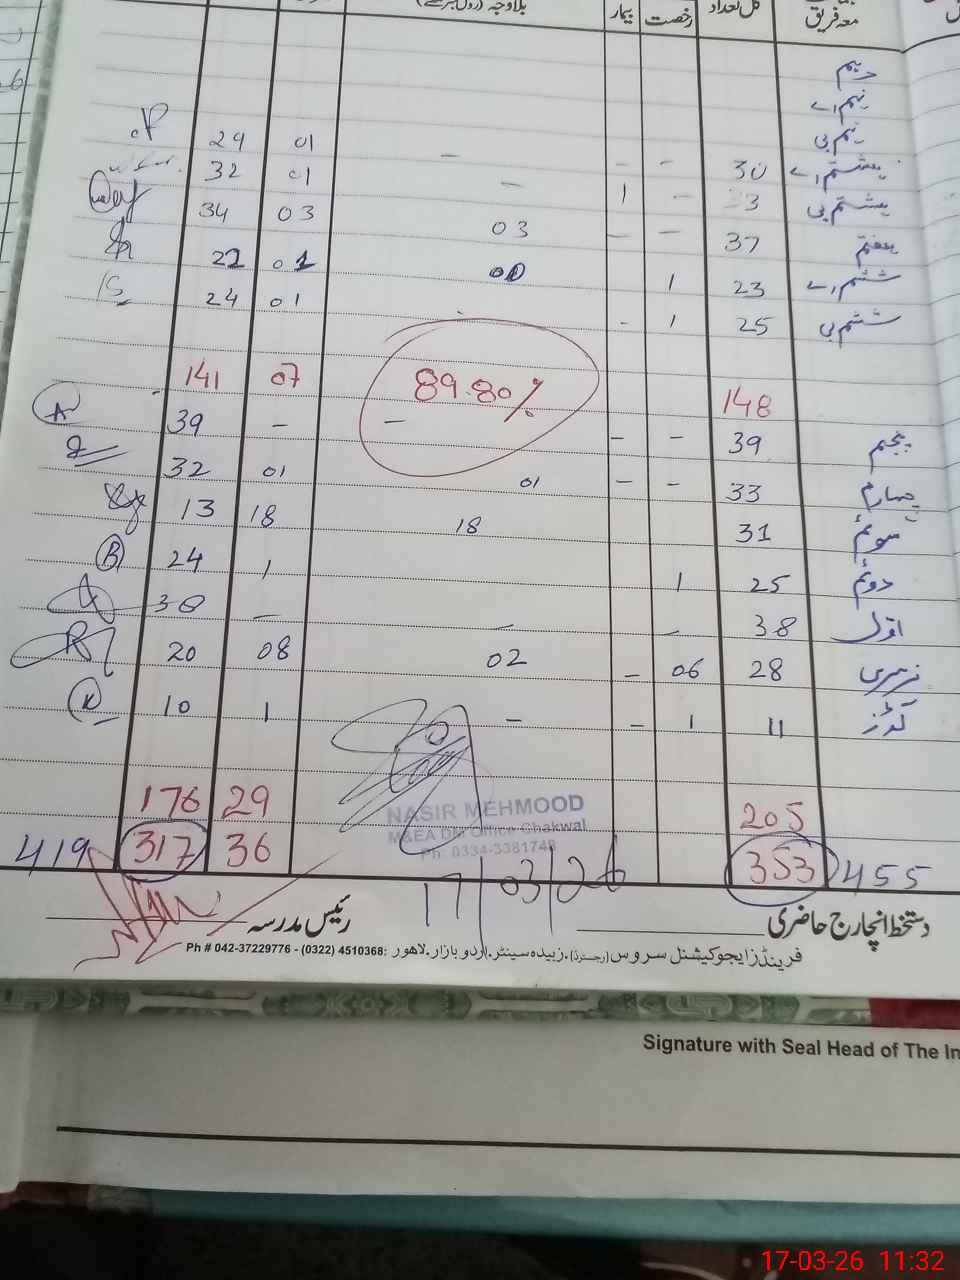 کل تعداد رخصت بیمار بلاوجہ (رول نمبر سے)
معہ فریق
دہم
نہم اے
نہم بی
ہشتم اے 30 - - - 01 29
ہشتم بی 3 - 1 - 01 32
ہفتم 37 - - 03 03 34
ششم اے 23 1 01 22
ششم بی 25 1 - 01 24
148 89.80% 07 141
پنجم 39 - - - - 39
چہارم 33 - - 01 01 32
سوئم 31 18 18 13
دوئم 25 1 1 24
اوّل 38 - - - 38
نرسری 28 06 - 02 08 20
کڈز 11 1 - - 1 10
205 29 176
455 353 36 317 419
NASIR MEHMOOD
M&EA DM Office Chakwal
Ph: 0334-3381748
17/03/26
دستخط انچارج حاضری رئیس مدرسہ
فرینڈز ایجوکیشنل سروس (رجسٹرڈ). زبیدہ سینٹر. اردو بازار. لاہور Ph # 042-37229776 - (0322) 4510368:
Signature with Seal Head of The In
17-03-26 11:32